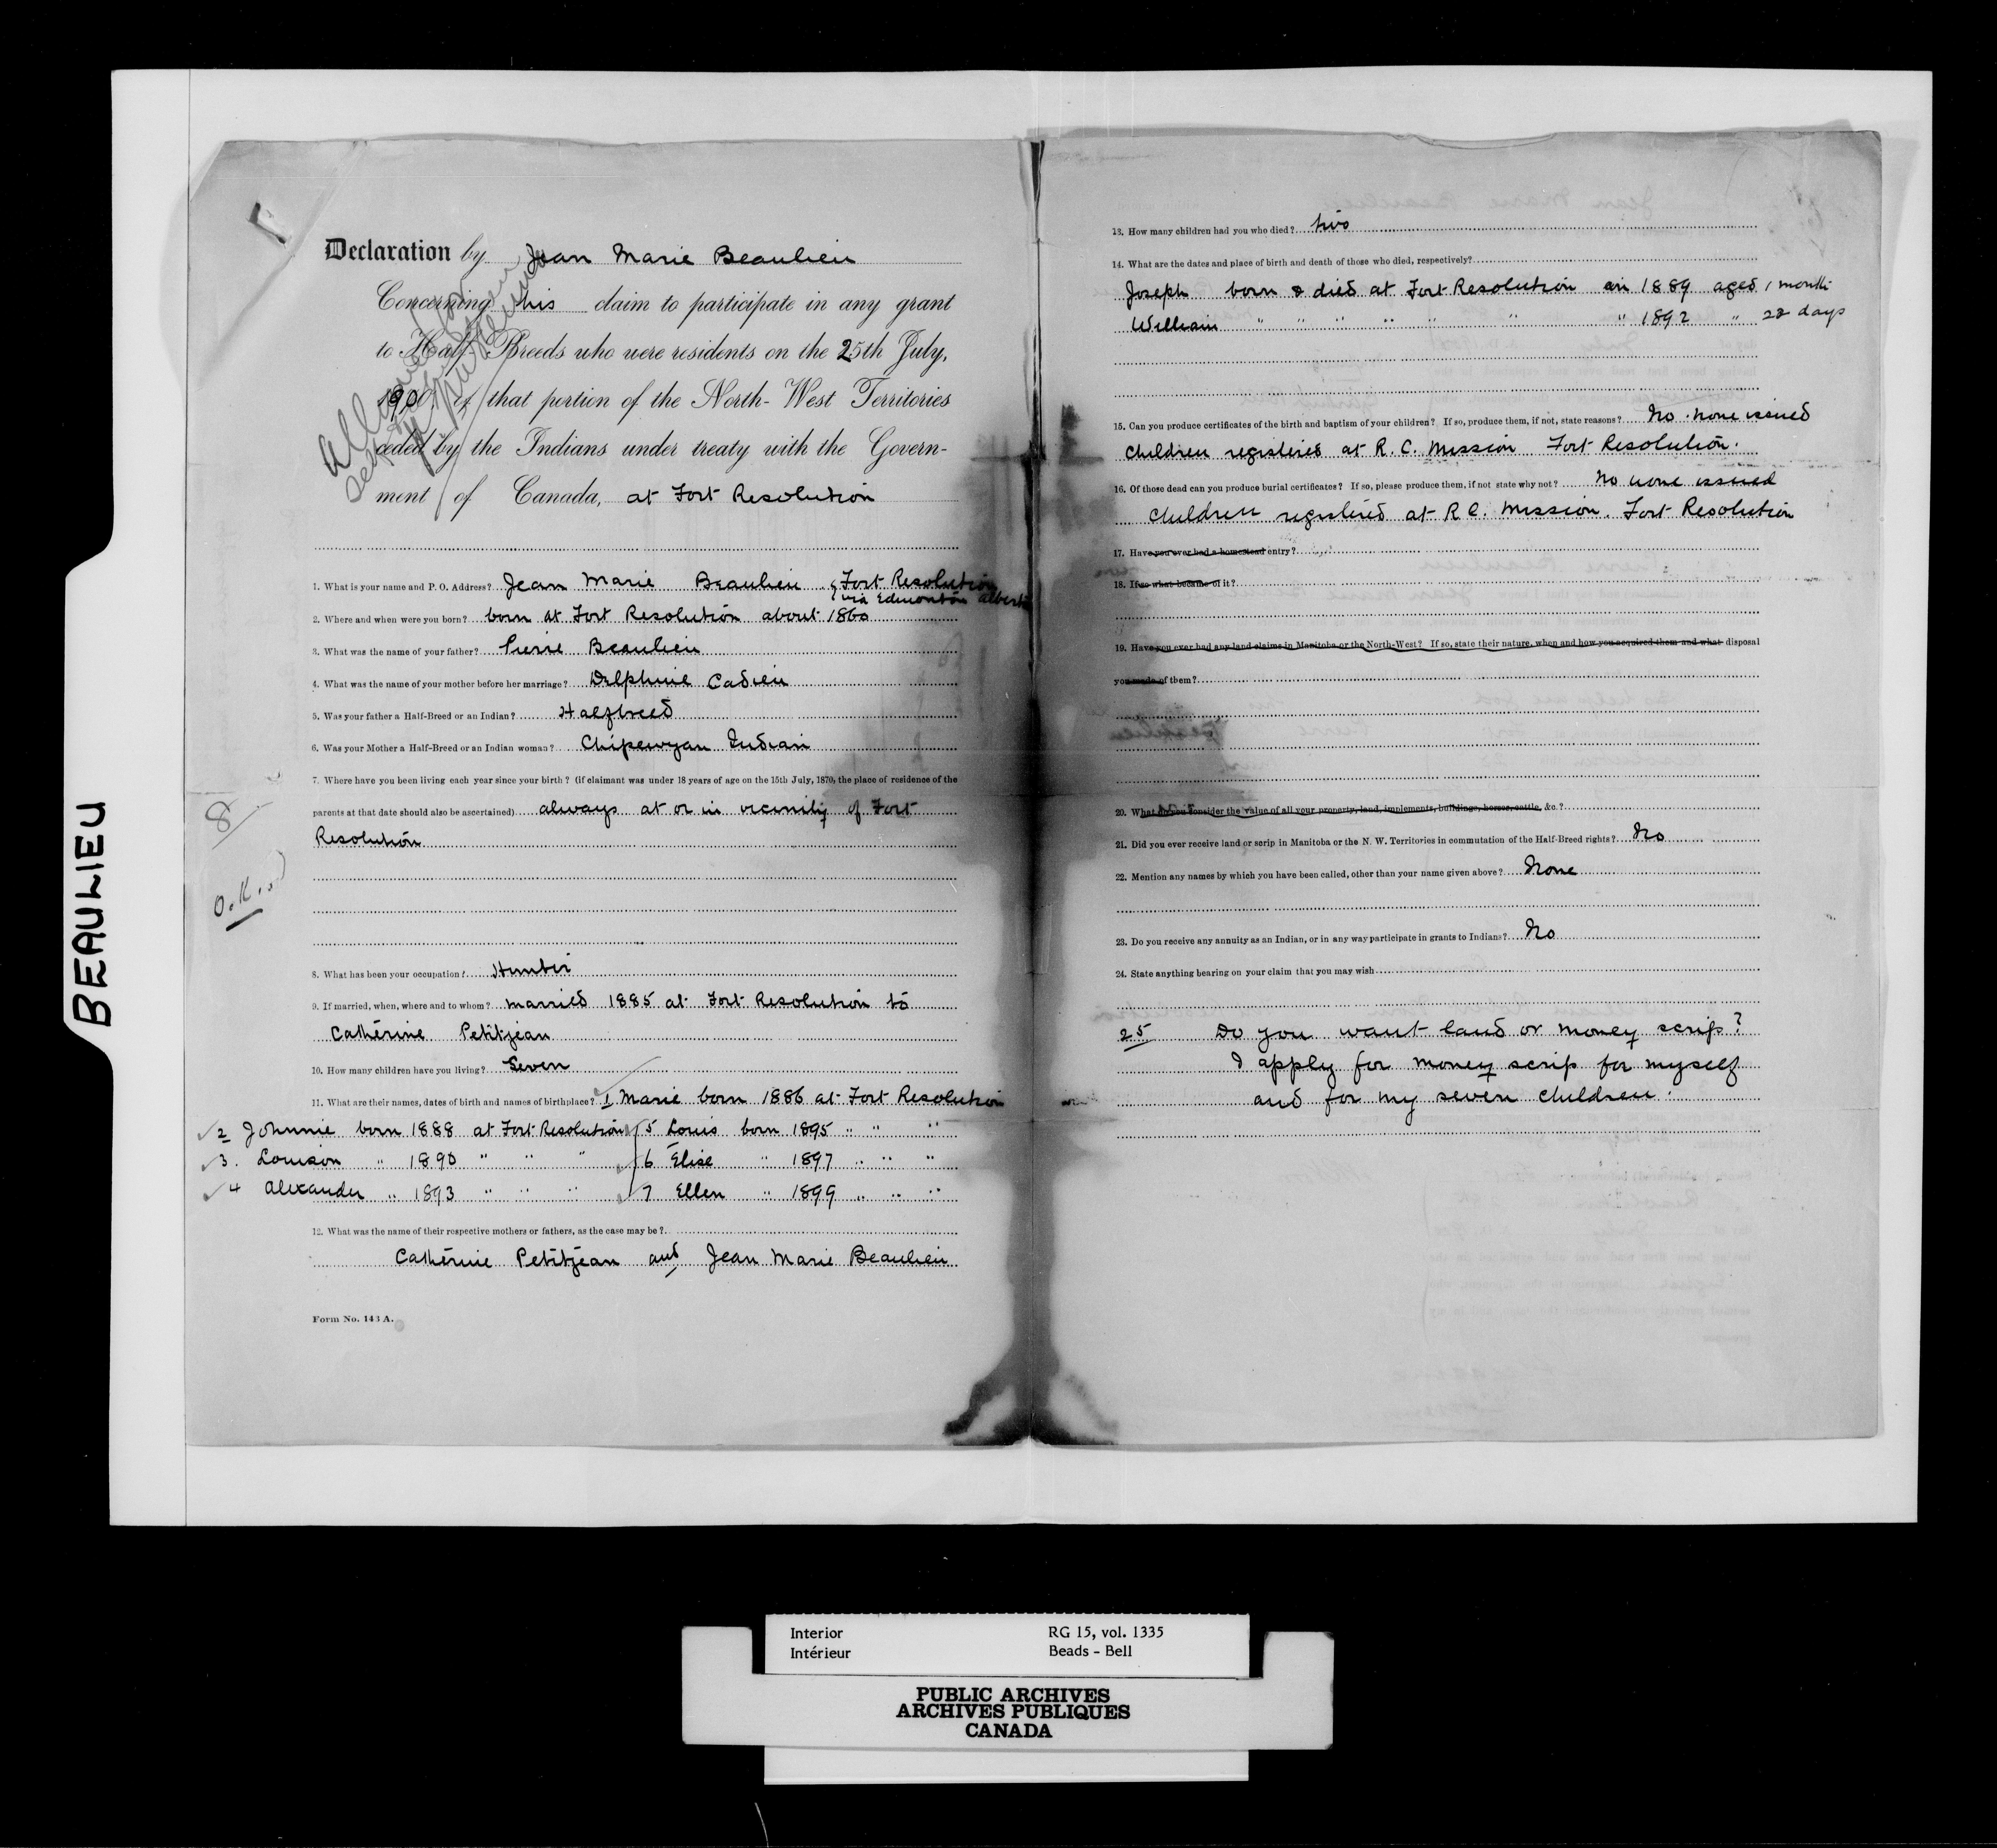 BEAULIEU
Declaration by Jean Marie Beaulieu
Concerning his claim to participate in any grant
to Half Breeds who were residents on the 25th July,
1900, of that portion of the North-West Territories
ceded by the Indians under treaty with the Govern-
ment of Canada, at Fort Resolution
Allowed
1. What is your name and P. O. Address? Jean Marie Beaulieu Fort Resolution
via Edmonton Alberta
2. Where and when were you born? born at Fort Resolution about 1860
3. What was the name of your father? Pierre Beaulieu
4. What was the name of your mother before her marriage? Delphine Cadieu
5. Was your father a Half-Breed or an Indian? Halfbreed
6. Was your Mother a Half-Breed or an Indian woman? Chipewyan Indian
7. Where have you been living each year since your birth? (if claimant was under 18 years of age on the 15th July, 1870, the place of residence of the
parents at that date should also be ascertained) always at or in vicinity of Fort
Resolution
8
O.K.
8. What has been your occupation? Hunter
9. If married, when, where and to whom? married 1885 at Fort Resolution to
Catherine Petitjean
10. How many children have you living? Seven
11. What are their names, dates of birth and names of birthplace? 1 Marie born 1886 at Fort Resolution
2 Johnnie born 1888 at Fort Resolution 5 Louis born 1895 " " "
3. Louison " 1890 " " " 6 Elise " 1897 " " "
4 Alexander " 1893 " " " 7 Ellen " 1899 " " "
12. What was the name of their respective mothers or fathers, as the case may be?
Catherine Petitjean and Jean Marie Beaulieu
Form No. 143 A.
13. How many children had you who died? two
14. What are the dates and place of birth and death of those who died, respectively?
Joseph born & died at Fort Resolution in 1889 aged 1 month
William " " " " " " " 1892 " 22 days
15. Can you produce certificates of the birth and baptism of your children? If so, produce them, if not, state reasons? No. none issued
children registered at R. C. Mission Fort Resolution.
16. Of those dead can you produce burial certificates? If so, please produce them, if not state why not? No none issued
children registered at R C. Mission. Fort Resolution
17. Have you ever had a homestead entry?
18. If so what became of it?
19. Have you ever had any land claims in Manitoba or the North-West? If so, state their nature, when and how you acquired them and what disposal
you made of them?
20. What do you consider the value of all your property, land, implements, buildings, horses, cattle, &c.?
21. Did you ever receive land or scrip in Manitoba or the N. W. Territories in commutation of the Half-Breed rights? No
22. Mention any names by which you have been called, other than your name given above? None
23. Do you receive any annuity as an Indian, or in any way participate in grants to Indians? No
24. State anything bearing on your claim that you may wish
25 Do you want land or money scrip?
I apply for money scrip for myself
and for my seven children.
Interior RG 15, vol. 1335
Intérieur Beads - Bell
PUBLIC ARCHIVES
ARCHIVES PUBLIQUES
CANADA